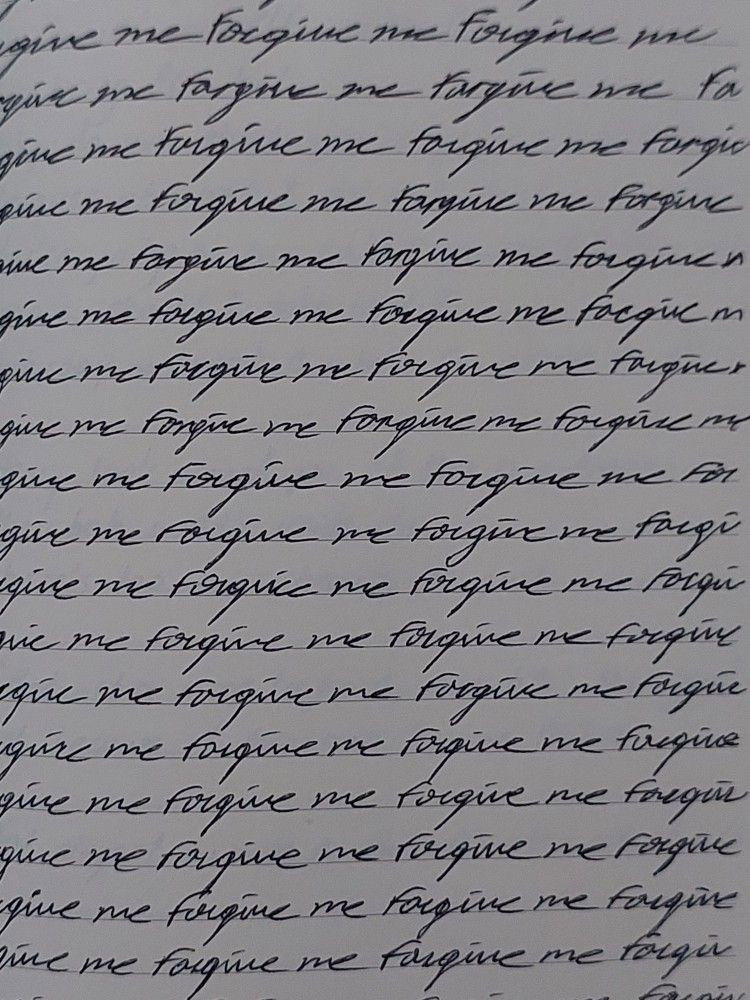 give me Forgive me Forgive me
rgive me Forgive me Forgive me Fo
give me Forgive me Forgive me Forgiv
give me Forgive me Forgive me Forgive
give me Forgive me Forgive me Forgive
give me Forgive me Forgive me Forgive m
give me Forgive me Forgive me Forgive
give me Forgive me Forgive me Forgive me
give me Forgive me Forgive me For
give me Forgive me Forgive me Forgi
give me Forgive me Forgive me Forgiv
give me Forgive me Forgive me Forgive
rgive me Forgive me Forgive me Forgive
rgive me Forgive me Forgive me Forgive
give me Forgive me Forgive me Forgive
give me Forgive me Forgive me Forgive
give me Forgive me Forgive me Forgive
give me Forgive me Forgive me Forgiv